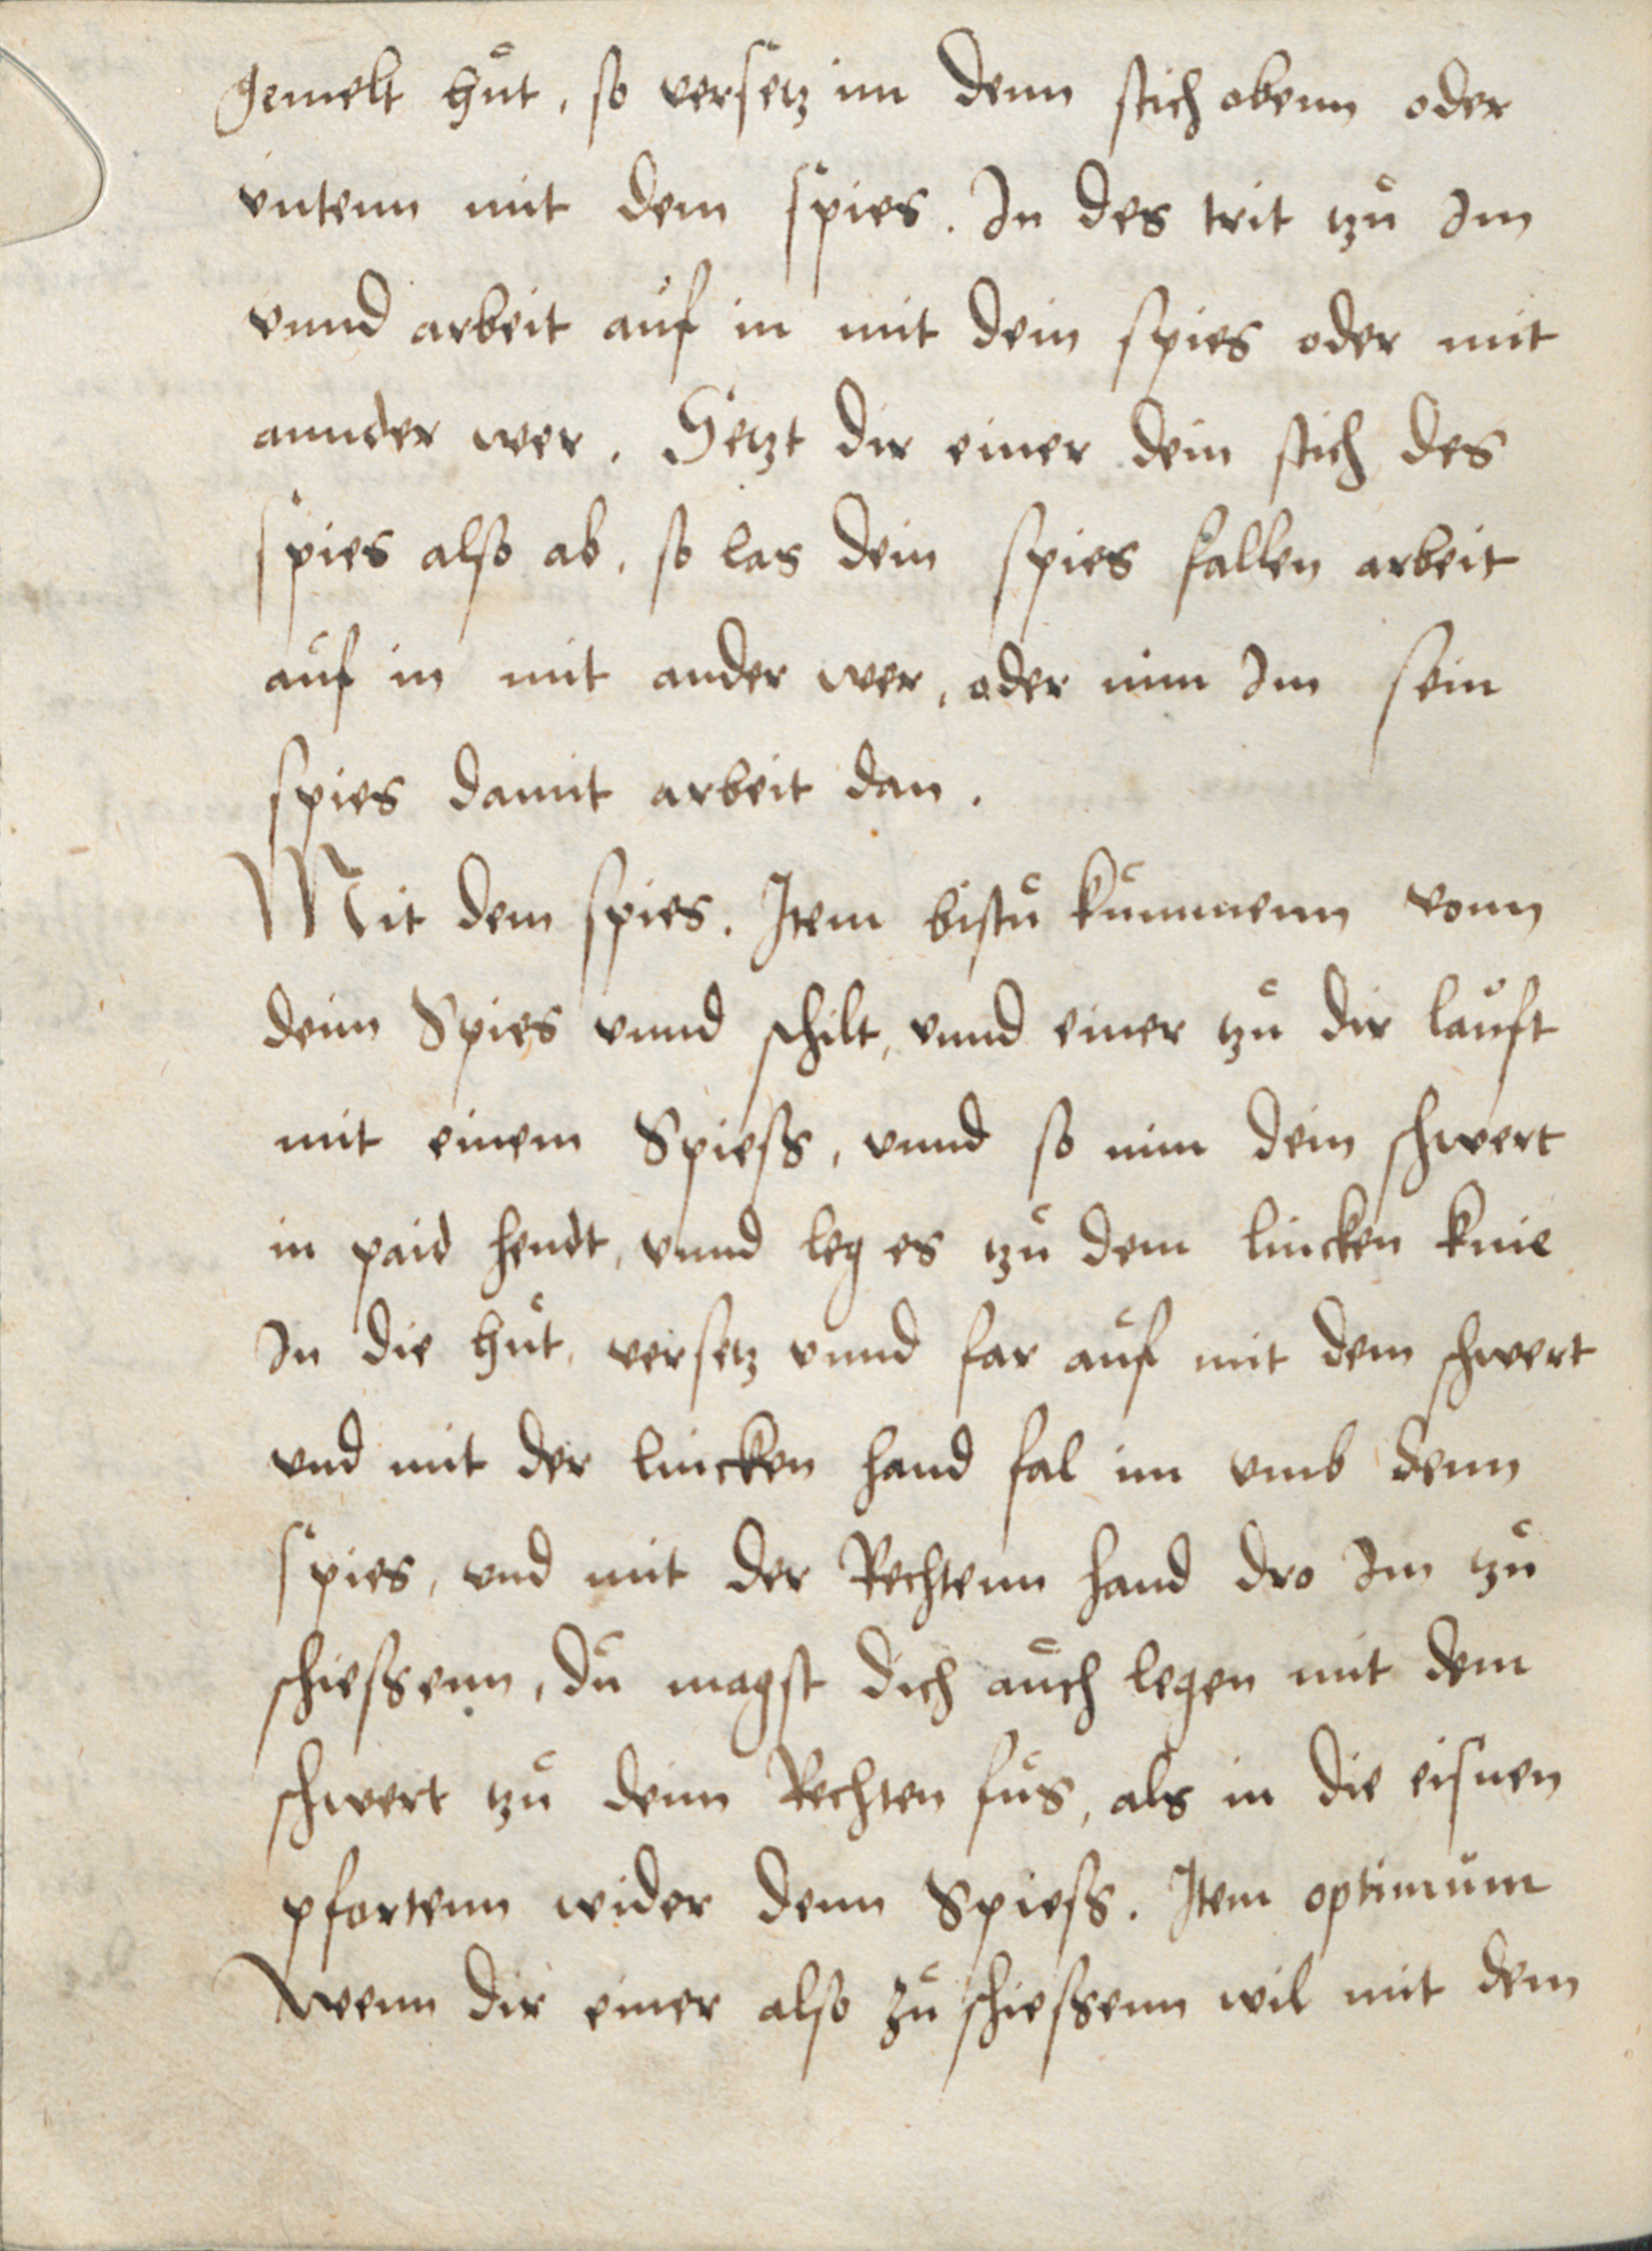 gemelt hůt, so versetz im denn stich obenn oder
vntenn mit dem spies. In des trit zů Im
vnnd arbeit auf in mit dein spies oder mit
annder wer. Setzt dir einer dein stich des
spies also ab, so las dein spies fallen arbeit
auf in mit ander wer, oder nim Im sein
spies damit arbeit dan.
Mit dem spies. Item bistů kůmmenn vonn
deim Spies vnnd schilt, vnnd einer zů dir lauft
mit einem Spiess, vnnd so nim dein schwert
in paid hendt, vnnd leg es zů dem lincken knie
In die hůt, versetz vnnd far auf mit dem schwert
vnd mit der lincken hand fal im vmb denn
spies, vnd mit der Rechtenn hand dro Im zů
schiessenn, dů magst dich aůch legen mit dem
schwert zů deim Rechten fůs, als in die eisnen
pfortenn wider denn Spiess. Item optimům
Wenn dir einer also zů schiessenn wil mit dem